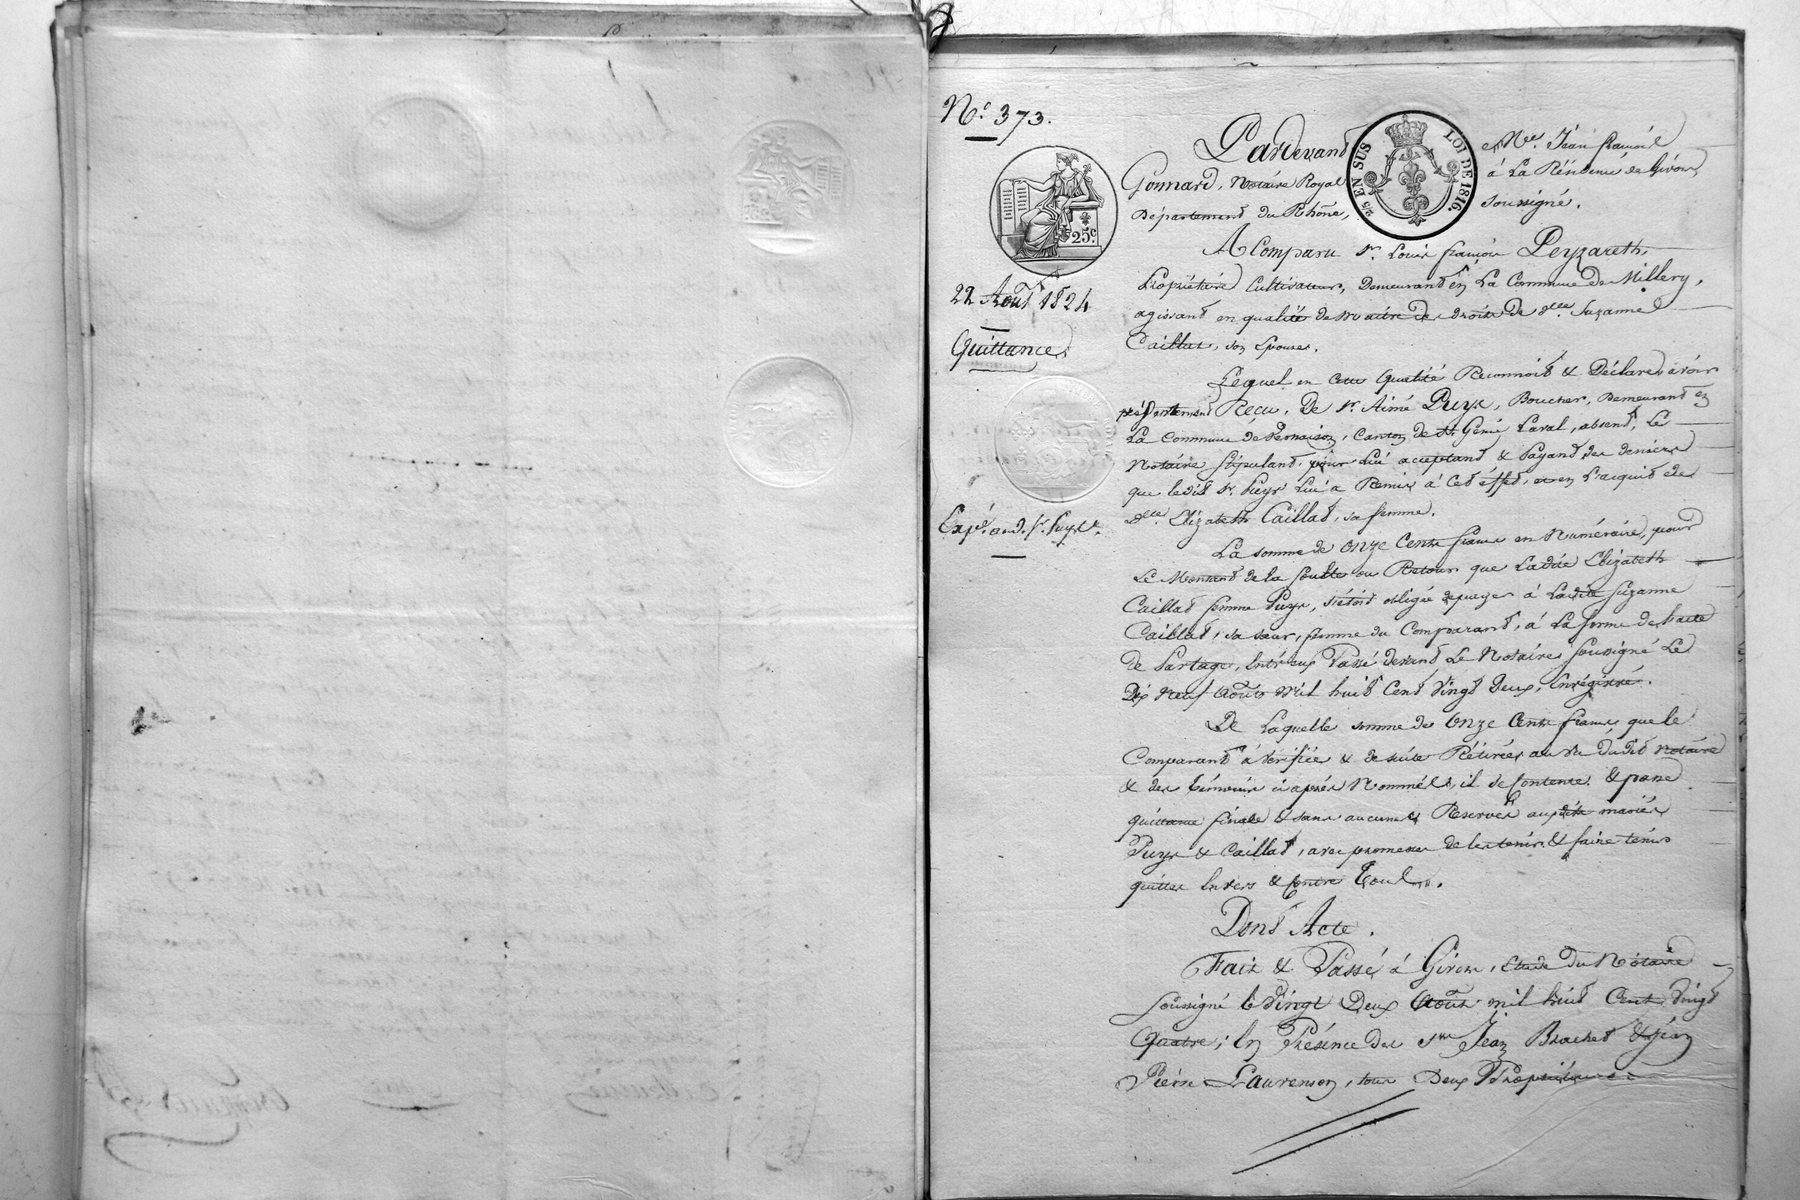 N.º 373.
Pardevant Me. Jean françois
Gonnard, Notaire Royal à La Résidence de Givors,
Département du Rhône, soussigné.
25 EN SUS
LOI DE 1816.
25c.
A Comparu Sr. Louis françois Peyzareth,
Propriétaire Cultivateur, Demeurant en La Commune de Millery,
agissant en qualité de maitre des droits de de. Suzanne
Caillat, son Epouse.
22 Août 1824
Quittance
Lequel en cette Qualité Reconnoit & Déclare avoir
présentement Reçu, De Sr. Aimé Puyr, Boucher, Demeurant en
La Commune de Vernaison, Canton de St. Genis Laval, absent, Le
Notaire stipulant pour Lui acceptant & Payant des deniers
que ledit Sr. Puyr Lui a Remis à Cet éffet, en L'acquit de
de. Elizabeth Caillat, sa femme.
Expé. aud. Sr. Puyr.
La somme de Onze Cents francs en Numéraire, pour
Le Montant de la soulte ou Retour que Ladite Elizabeth
Caillat femme Puyr, s'étoit obligée de payer à Ladite Suzanne
Caillat, sa sœur, femme du Comparant, à La forme de L'acte
de Partage, Entr'eux Passé devant Le Notaire soussigné Le
Dix Neuf Août Mil huit Cent Vingt Deux, Enrégistré.
De Laquelle somme de Onze Cents francs que le
Comparant à Vérifiée & de suite Rétirée au Vu dudit Notaire
& des témoins ci après Nommés, il se Contente & passe
quittance finale & sans aucune Réserve auxdits mariés
Puyr & Caillat, avec promesse de les tenir & faire tenir
quittes Envers & Contre Tous.
Dont Acte.
Fait & Passé à Givors, Etude du Notaire
soussigné le Vingt Deux Août mil huit Cent Vingt
Quatre, En Présence des Srs Jean Brachet & Jean
Pierre Laurenson, tous Deux Propriétaires